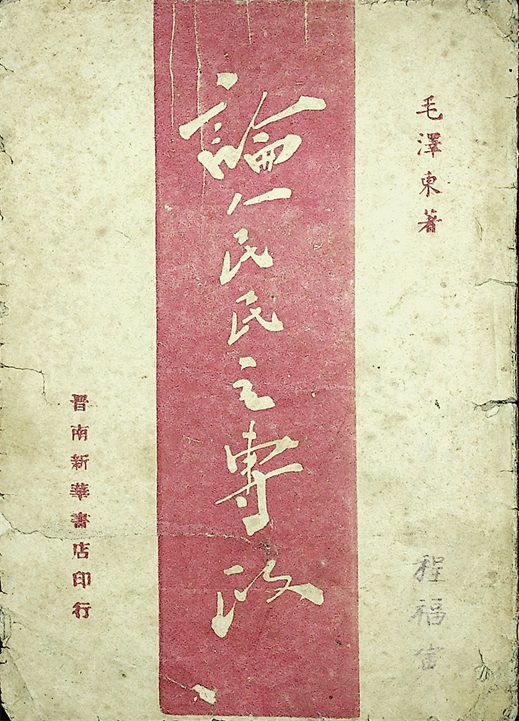 毛澤東著
程福
論人民民主專政
晋南新華書店印行